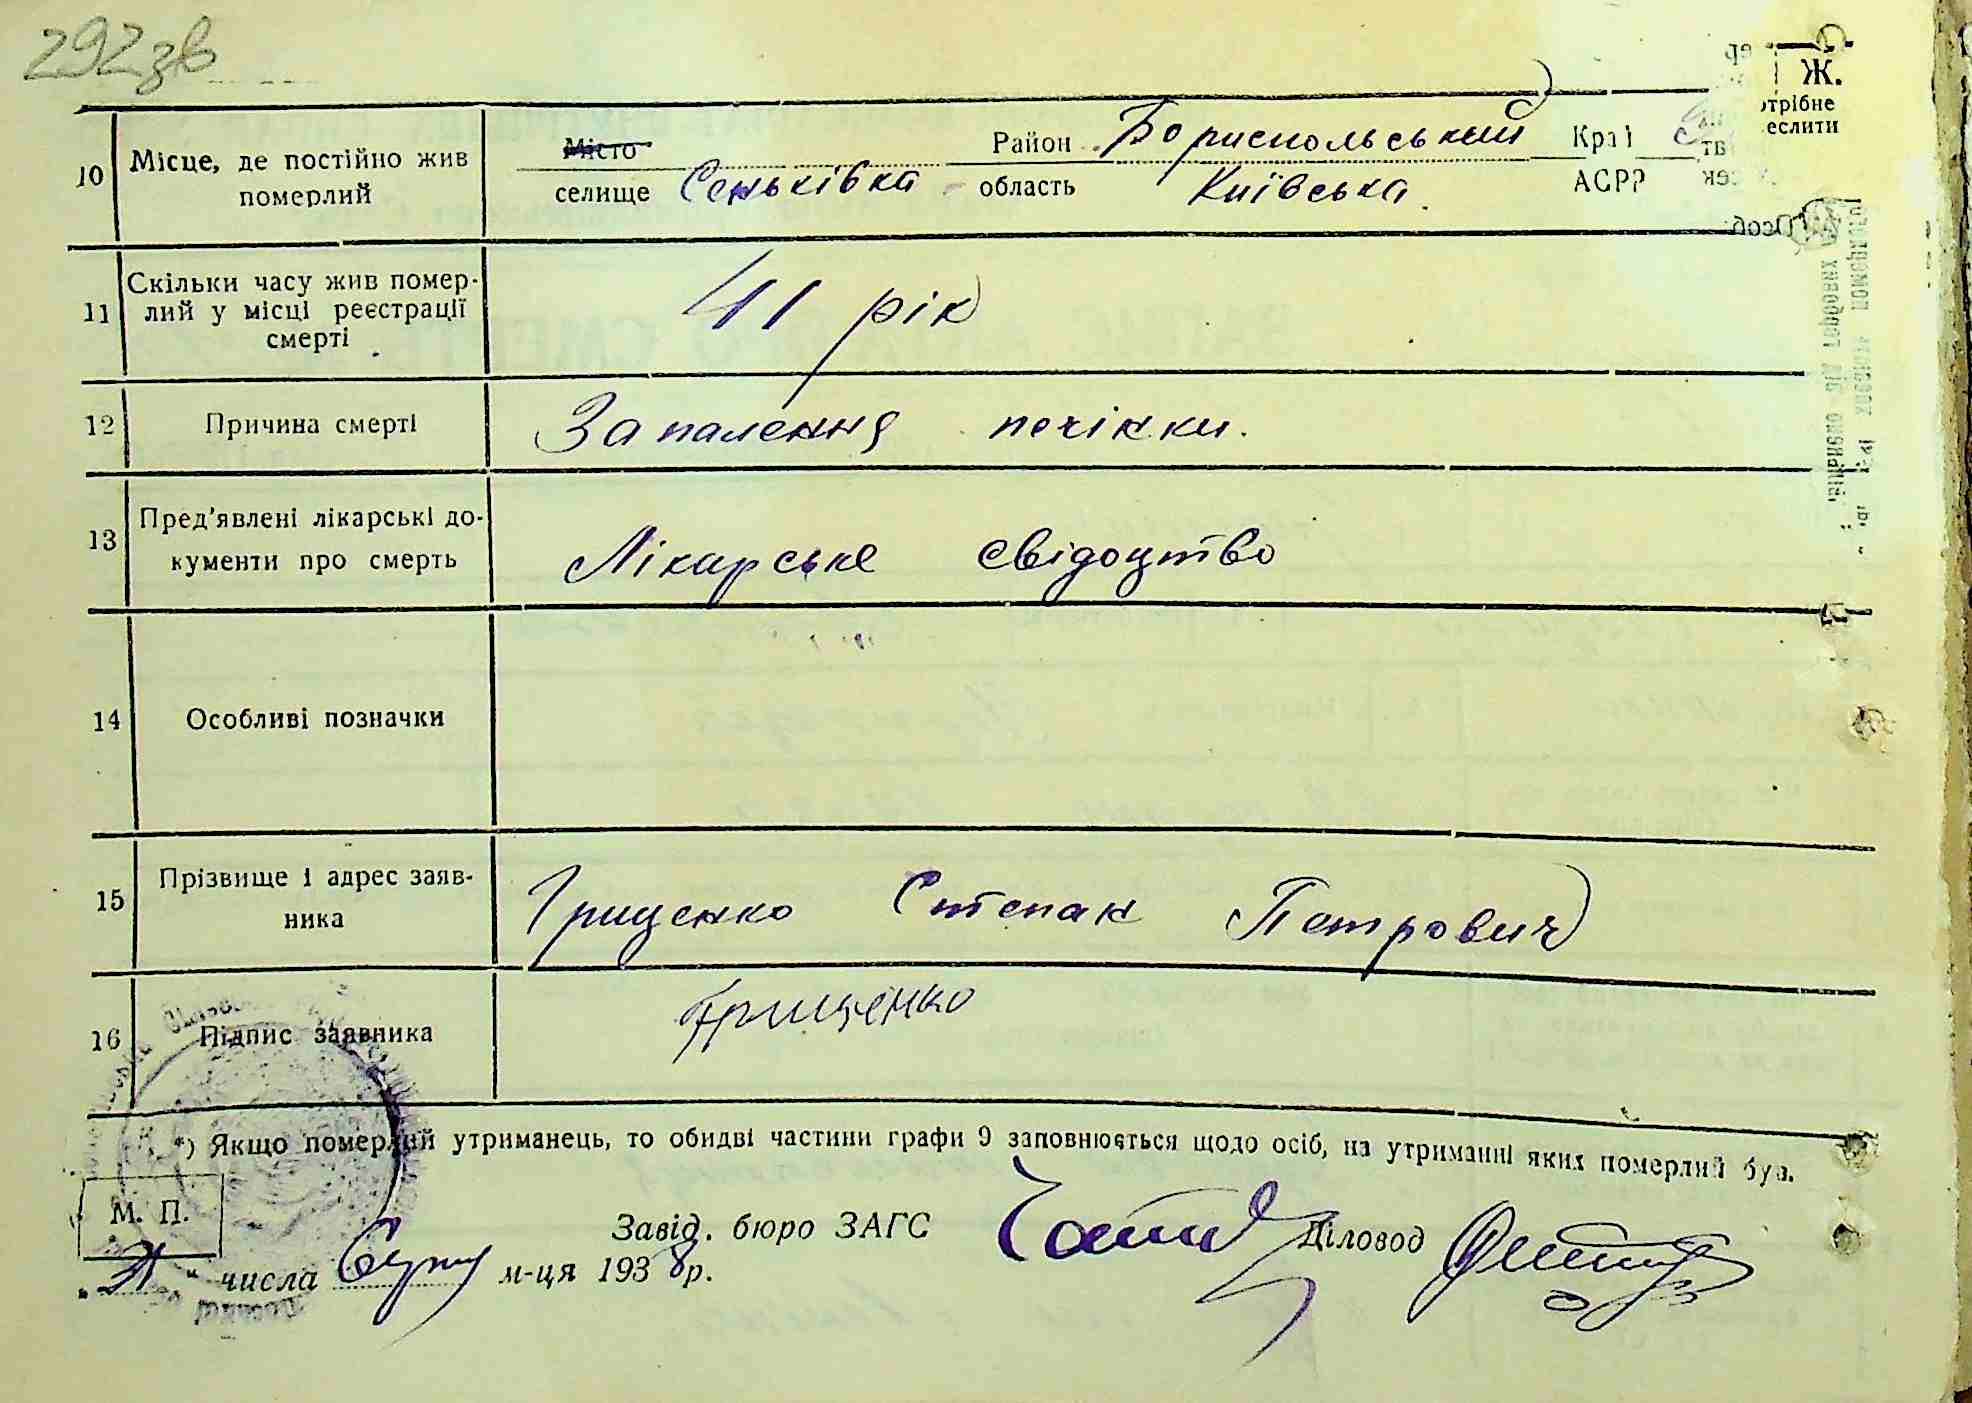 292зв
Ж.
10 Місце, де постійно жив померлий
Місто Район Бориспольський Край
селище Сеньківка область Київська АСРР
11 Скільки часу жив помер-
лий у місці реєстрації
смерті
41 рік
12 Причина смерті Запалення печінки.
13 Пред'явлені лікарські до-
кументи про смерть
Лікарське свідоцтво
14 Особливі позначки
15 Прізвище і адрес заяв-
ника
Грищенко Степан Петрович
16 Підпис заявника Грищенко
*) Якщо померлий утриманець, то обидві частини графи 9 заповнюється щодо осіб, на утриманні яких померлий був.
М. П.
Завід. бюро ЗАГС Діловод
числа м-ця 1938р.